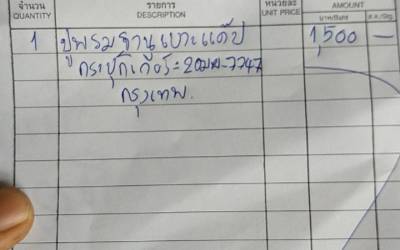 จำนวน รายการ หน่วยละ AMOUNT
QUANTITY DESCRIPTION UNIT PRICE บาท/Baht ส.ต./Stg.
1 ปูพรมฐานเบาะแค๊ป 1,500 —
กระบุ๊กเกอร์=2ฒฒ-7747
กรุงเทพ.